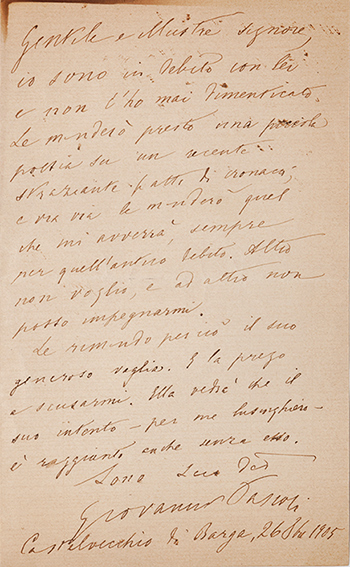 Gentile e illustre signore,
io sono in debito con lei
e non l'ho mai dimenticato.
Le manderò presto una piccola
poesia su un recente
straziante fatto di cronaca,
e via via le manderò quel
che mi avverrà, sempre
per quell'antico debito. Altro
non voglio, e ad altro non
posso impegnarmi.
Le rimando perciò il suo
generoso vaglia. E la prego
a scusarmi. Ella vedrà che il
suo intento - per me lusinghiero -
è raggiunto anche senza esso.
Sono Suo
Giovanni Pascoli
Castelvecchio di Barga, 26 1905